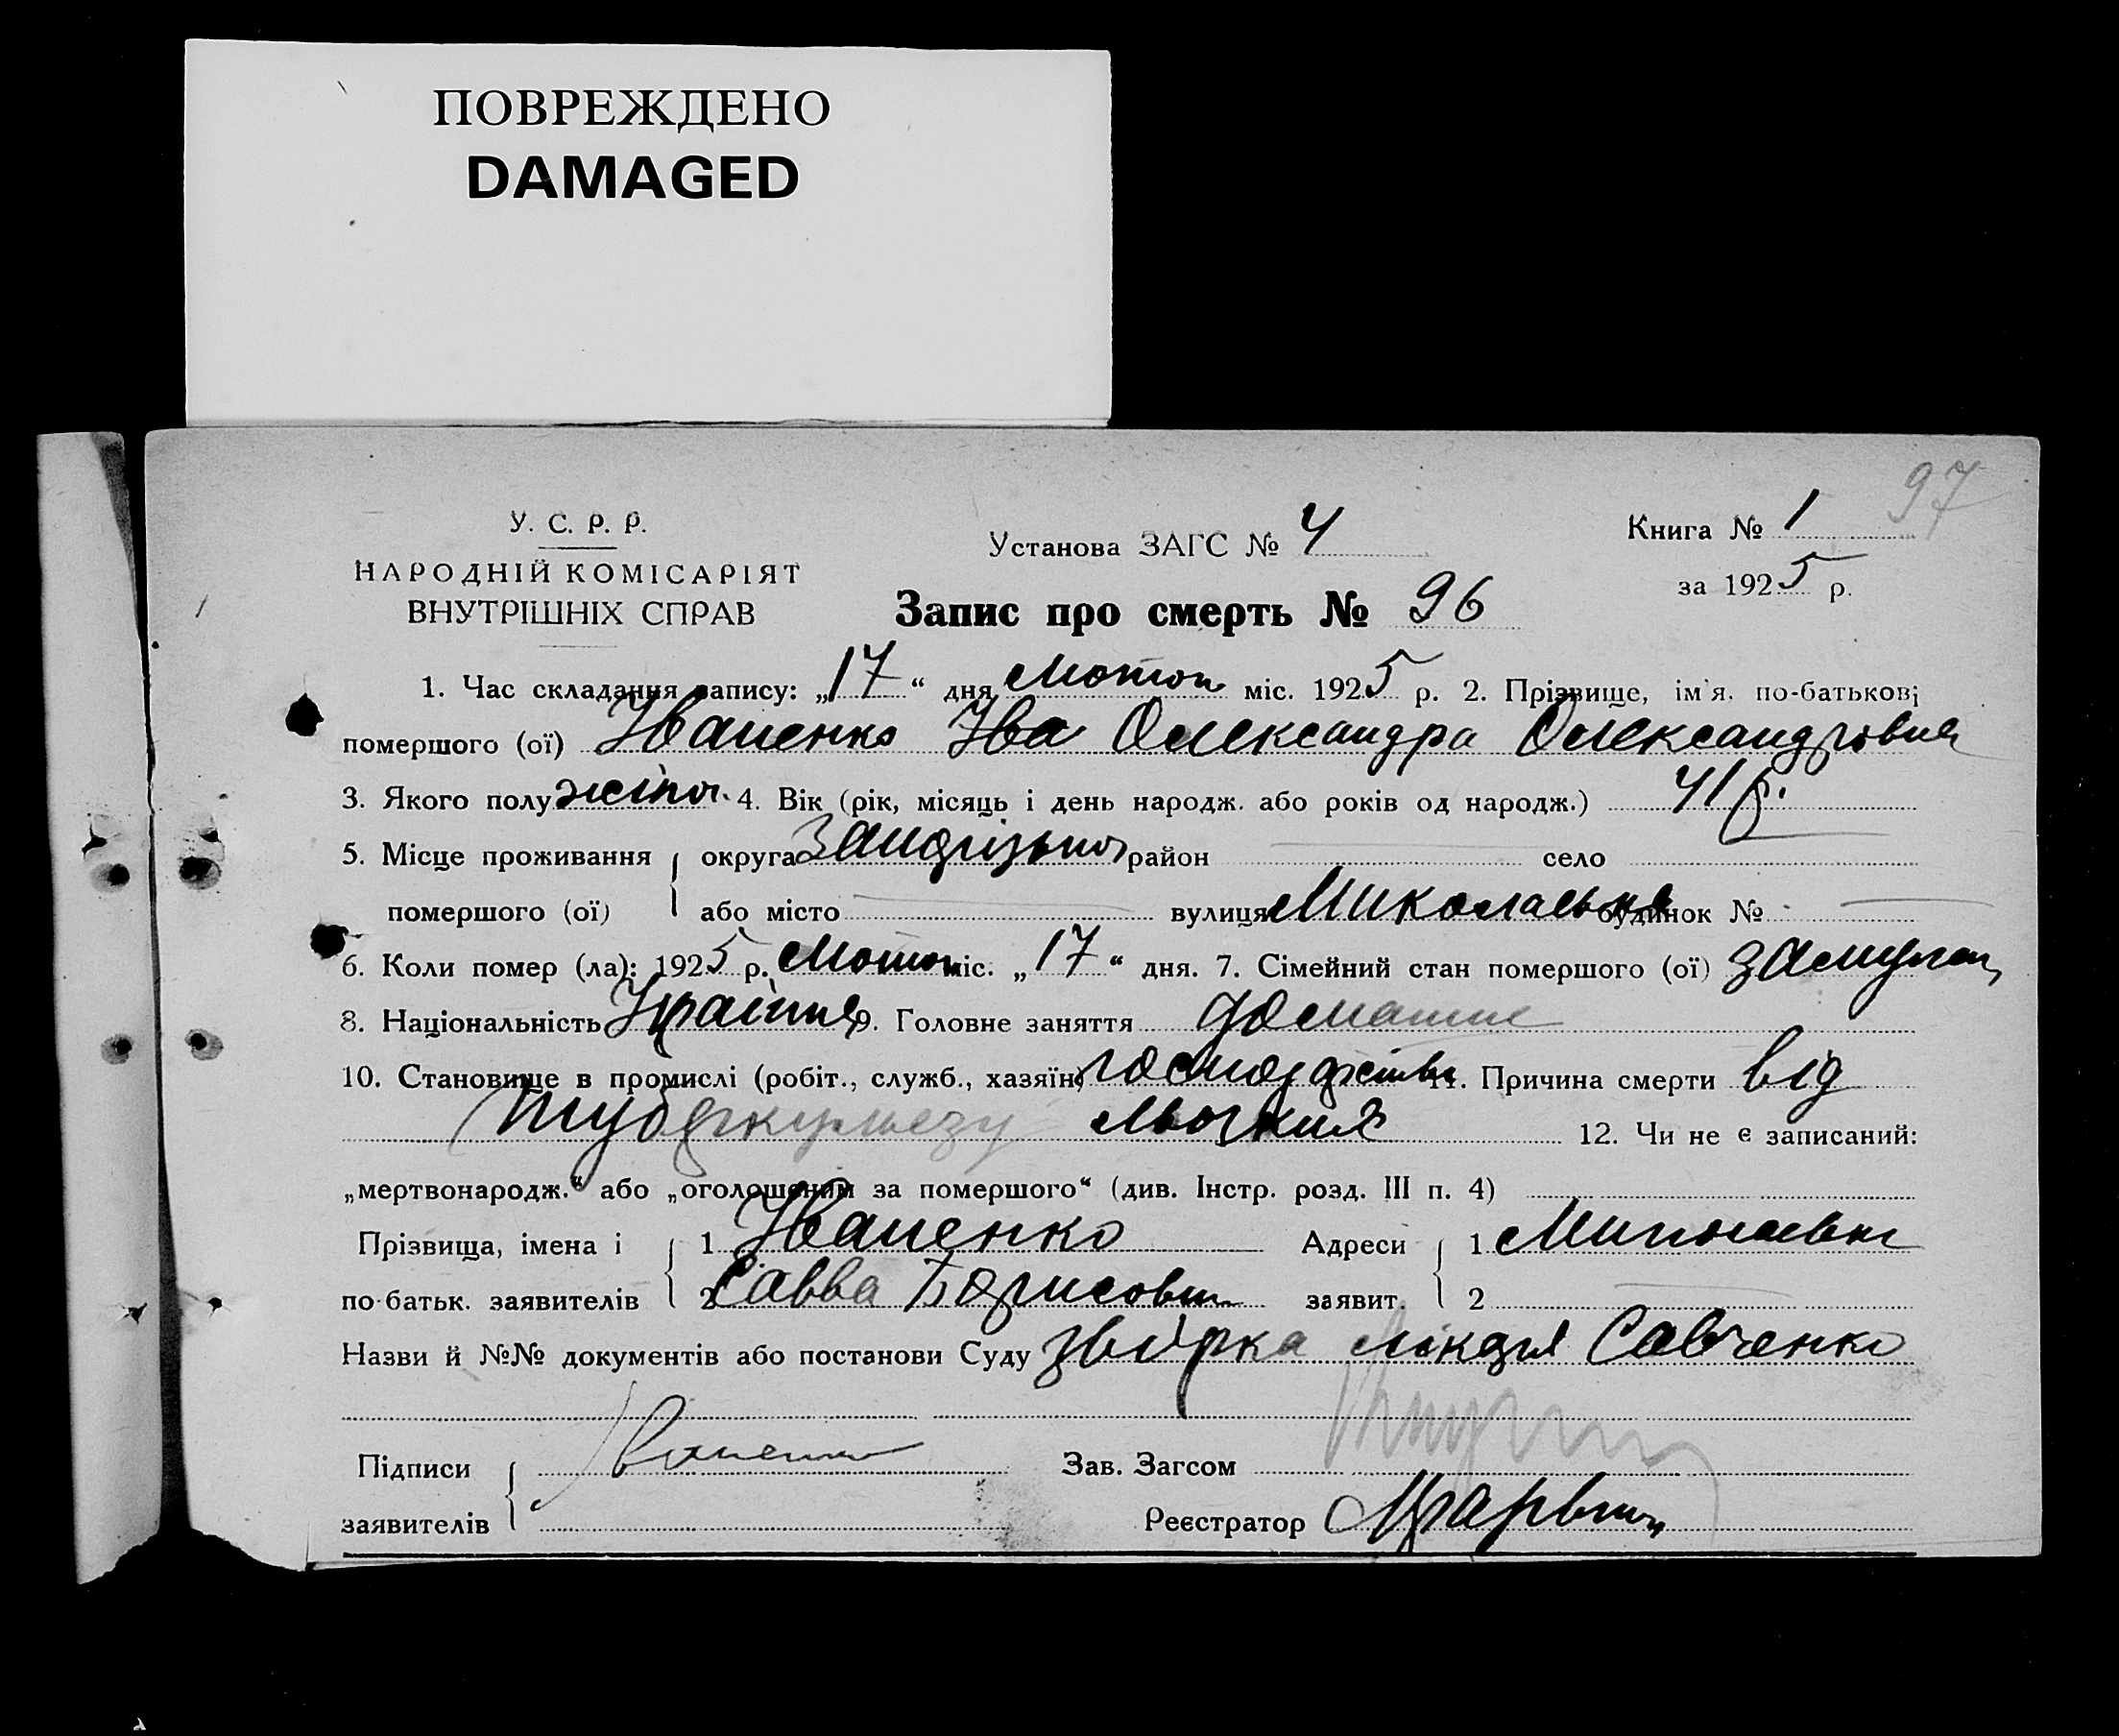 ПОВРЕЖДЕНО
DAMAGED
97
У. С. Р. Р.
НАРОДНІЙ КОМІСАРІЯТ
ВНУТРІШНІХ СПРАВ
Установа ЗАГС № 4
Книга № 1
за 1925 р.
Запис про смерть № 96
1. Час складання запису: „17“ дня міс. 1925 р. 2. Прізвище, ім'я, по-батькові
помершого (ої) Іваненко Іва Олександра Олександрівна
3. Якого полу жіноч. 4. Вік (рік, місяць і день народж. або років од народж.) 41 р.
5. Місце проживання округа район село
помершого (ої) або місто вулиця Миколаєвка будинок №
6. Коли помер (ла): 1925 р. міс. „17“ дня. 7. Сімейний стан помершого (ої)
8. Національність 9. Головне заняття домашнє
10. Становище в промислі (робіт., служб., хазяїн) 11. Причина смерти від
туберкульозу 12. Чи не є записаний:
„мертвонародж.“ або „оголошеним за помершого“ (див. Інстр. розд. III п. 4)
Прізвища, імена і 1 Іваненко Адреси 1
по-батьк. заявителів 2 Савва Борисович заявит. 2
Назви й №№ документів або постанови Суду лікаря Савченко
Підписи Іваненко Зав. Загсом
заявителів Реєстратор